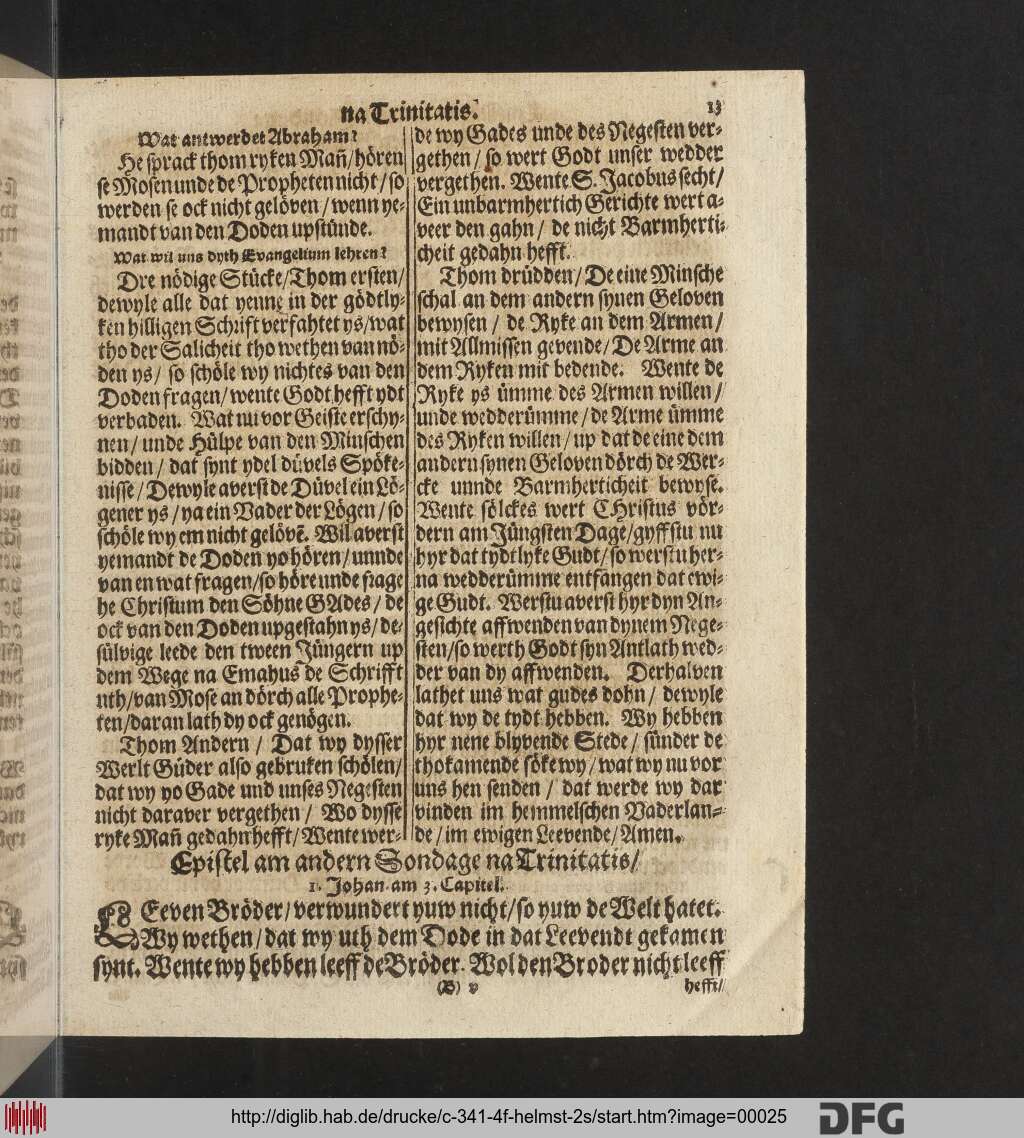 na Trinitatis.
13
Wat antwerdet Abraham?
He sprack thom ryken Mañ/hören
se Mosen unde de Propheten nicht/so
werden se ock nicht gelöven/wenn ye-
mandt van den Doden upstünde.
Wat wil uns dyth Evangelium lehren?
Dre nödige Stücke/Thom ersten/
dewyle alle dat yenne in der gödtly-
ken hilligen Schrift verfahtet ys/wat
tho der Salicheit tho wethen van nö-
den ys/ so schöle wy nichtes van den
Doden fragen/wente Godt hefft ydt
verbaden. Wat nu vor Geiste erschy-
nen/ unde Hülpe van den Minschen
bidden/ dat synt ydel düvels Spöke-
nisse/Dewyle averst de Düvel ein Lö-
gener ys/ya ein Vader der Lögen/so
schöle wy em nicht gelövẽ. Wil averst
yemandt de Doden yo hören/unnde
van en wat fragen/so höre unde frage
he Christum den Söhne GAdes/ de
ock van den Doden upgestahn ys/de-
sülvige leede den tween Jüngern up
dem Wege na Emahus de Schrifft
uth/van Mose an dörch alle Prophe-
ten/daran lath dy ock genögen.
Thom Andern/ Dat wy dysser
Werlt Güder also gebruken schölen/
dat wy yo Gade und unses Negesten
nicht daraver vergethen/ Wo dysse
ryke Mañ gedahn hefft/Wente wer-
de wy Gades unde des Negesten ver-
gethen/so wert Godt unser wedder
vergethen. Wente S. Jacobus secht/
Ein unbarmhertich Gerichte wert a-
veer den gahn/ de nicht Barmherti-
cheit gedahn hefft.
Thom drüdden/De eine Minsche
schal an dem andern synen Geloven
bewysen/ de Ryke an dem Armen/
mit Allmissen gevende/De Arme an
dem Ryken mit bedende. Wente de
Ryke ys ümme des Armen willen/
unde wedderümme/de Arme ümme
des Ryken willen/up dat de eine dem
andern synen Geloven dörch de Wer-
cke unnde Barmherticheit bewyse.
Wente sölckes wert CHristus vör-
dern am Jüngsten Dage/gyffstu nu
hyr dat tydtlyke Gudt/so werstu her-
na wedderümme entfangen dat ewi-
ge Gudt. Werstu averst hyr dyn An-
gesichte affwenden van dynem Nege-
sten/so werth Godt syn Antlath wed-
der van dy affwenden. Derhalven
lathet uns wat gudes dohn/ dewyle
dat wy de tydt hebben. Wy hebben
hyr nene blyvende Stede/ sünder de
thokamende söke wy/wat wy nu vor
uns hen senden/ dat werde wy dar
vinden im hemmelschen Vaderlan-
de/im ewigen Leevende/Amen.
Epistel am andern Sondage na Trinitatis/
1. Johan. am 3. Capitel.
LEeven Bröder/verwundert yuw nicht/so yuw de Welt hatet.
Wy wethen/dat wy uth dem Dode in dat Leevendt gekamen
synt. Wente wy hebben leeff de Bröder. Wol den Broder nicht leeff
(B) v
hefft/
http://diglib.hab.de/drucke/c-341-4f-helmst-2s/start.htm?image=00025
DFG